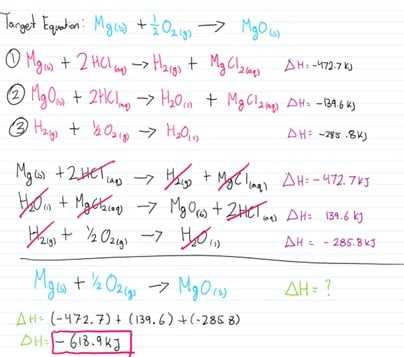 Target Equation: Mg(s) + ½O₂(g) → MgO(s)
① Mg(s) + 2HCl(aq) → H₂(g) + MgCl₂(aq) ΔH= -472.7kJ
② MgO(s) + 2HCl(aq) → H₂O(l) + MgCl₂(aq) ΔH= -139.6kJ
③ H₂(g) + ½O₂(g) → H₂O(l) ΔH= -285.8kJ
Mg(s) + 2HCl(aq) → H₂(g) + MgCl(aq) ΔH= -472.7kJ
H₂O(l) + MgCl₂(aq) → MgO(s) + 2HCl(aq) ΔH= 139.6kJ
H₂(g) + ½O₂(g) → H₂O(l) ΔH= -285.8kJ
Mg(s) + ½O₂(g) → MgO(s) ΔH= ?
ΔH= (-472.7) + (139.6) + (-285.8)
ΔH= -618.9kJ